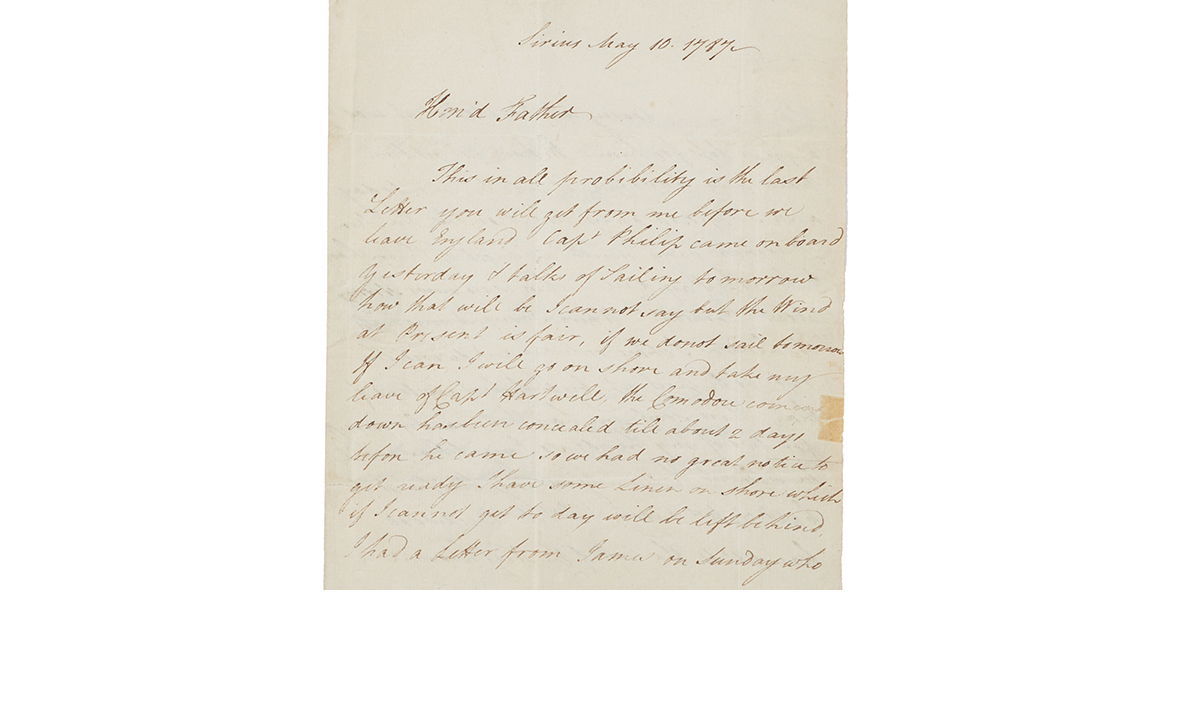 Sirius May 10. 1787
Hon'd Father
This in all probibility is the last
Letter you will get from me before we
leave England Capt Philip came on board
Yesterday & talks of Sailing tomorrow
how that will be I cannot say but the Wind
at Present is fair, if we donot sail tomorrow
If I can I will go on shore and take my
leave of Capt Hartwell, the Comodore coming
down has been concealed till about 2 days
before he came so we had no great notice to
get ready I have some Linen on shore which
if I cannot get to day will be left behind,
I had a Letter from James on Sunday who